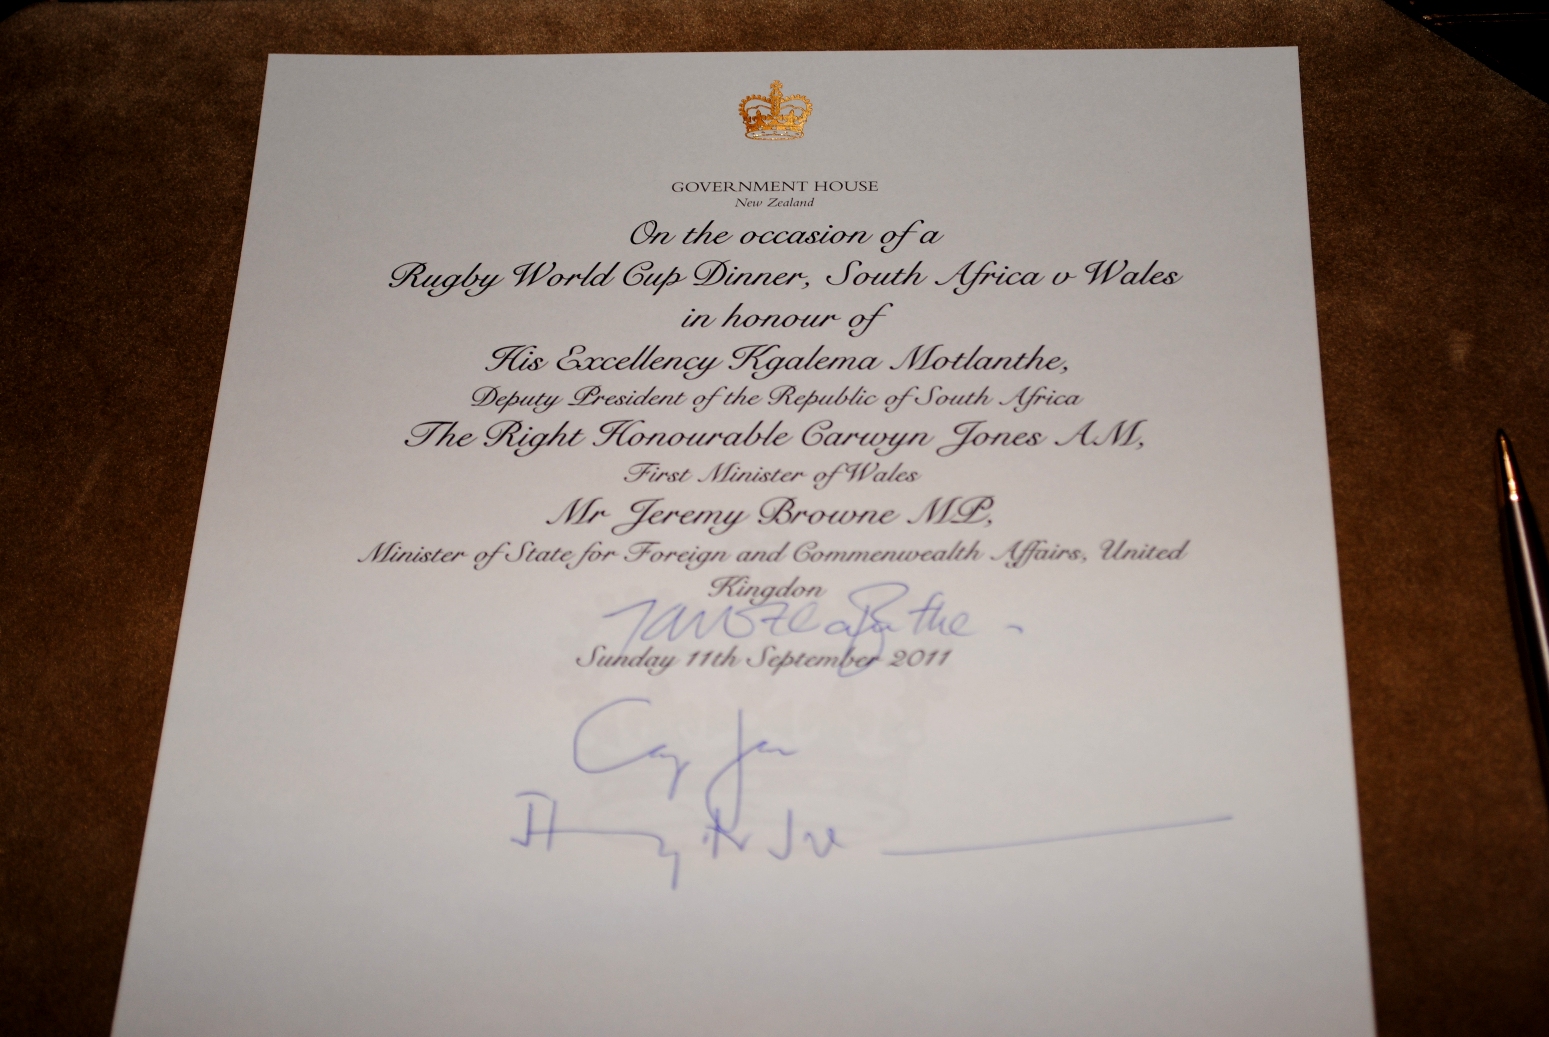 GOVERNMENT HOUSE
New Zealand
On the occasion of a
Rugby World Cup Dinner, South Africa v Wales
in honour of
His Excellency Kgalema Motlanthe,
Deputy President of the Republic of South Africa
The Right Honourable Carwyn Jones AM,
First Minister of Wales
Mr Jeremy Browne MP,
Minister of State for Foreign and Commenwealth Affairs, United
Kingdon
Sunday 11th September 2011